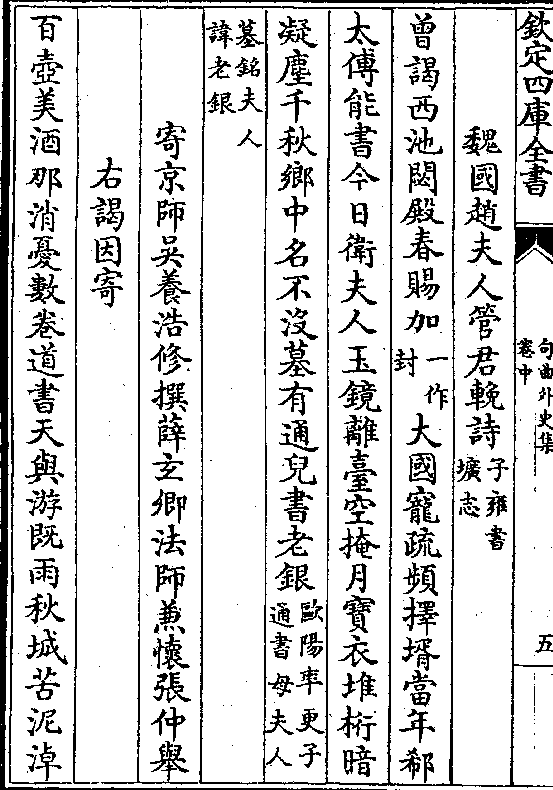 欽定四庫全書
句曲外史集
卷中
五
魏國趙夫人管君輓詩子雍書
壙志
曾謁西池閟殿春賜加一作
封大國寵疏頻擇壻當年郗
太傅能書今日衛夫人玉鏡離臺空掩月寶衣堆桁暗
凝塵千秋鄉中名不沒墓有通兒書老銀歐陽率更子
通書母夫人
墓銘夫人
諱老銀
寄京師吳養浩修撰薛玄卿法師兼懷張仲舉
右謁因寄
百壺美酒那消憂數卷道書天與游既雨秋城苦泥淖